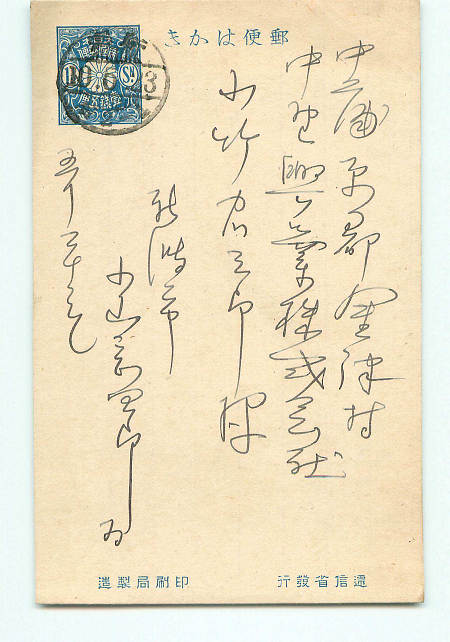 郵便はかき
1½ Sn.
中蒲原郡金津村
中野興業株式会社
小竹三郎様
新潟市
小山四郎
五月三十
遞信省發行
印刷局製造